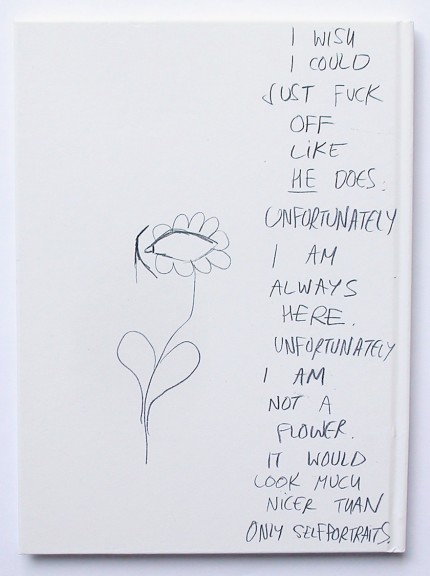 I WISH
I COULD
JUST FUCK
OFF
LIKE
HE DOES.
UNFORTUNATELY
I AM
ALWAYS
HERE.
UNFORTUNATELY
I AM
NOT A
FLOWER.
IT WOULD
LOOK MUCH
NICER THAN
ONLY SELFPORTRAITS.